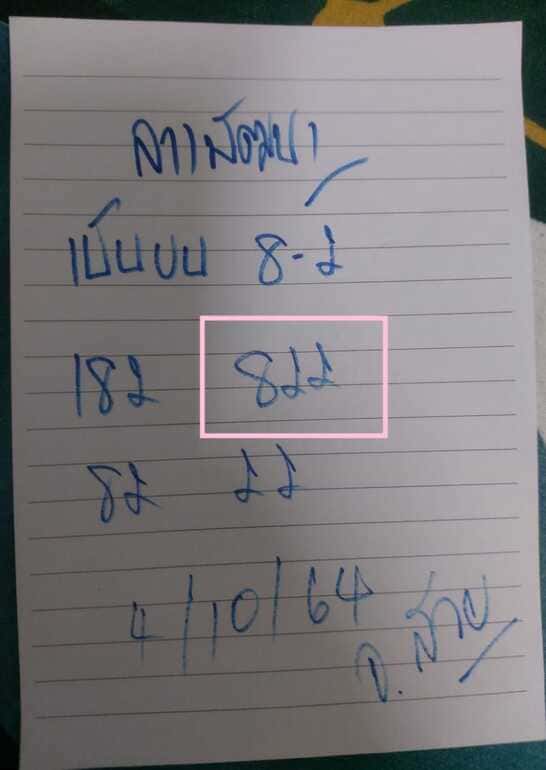 ลาวพัฒนา
เน้นบน 8-2
182 822
82 22
4/10/64
อ. สาย